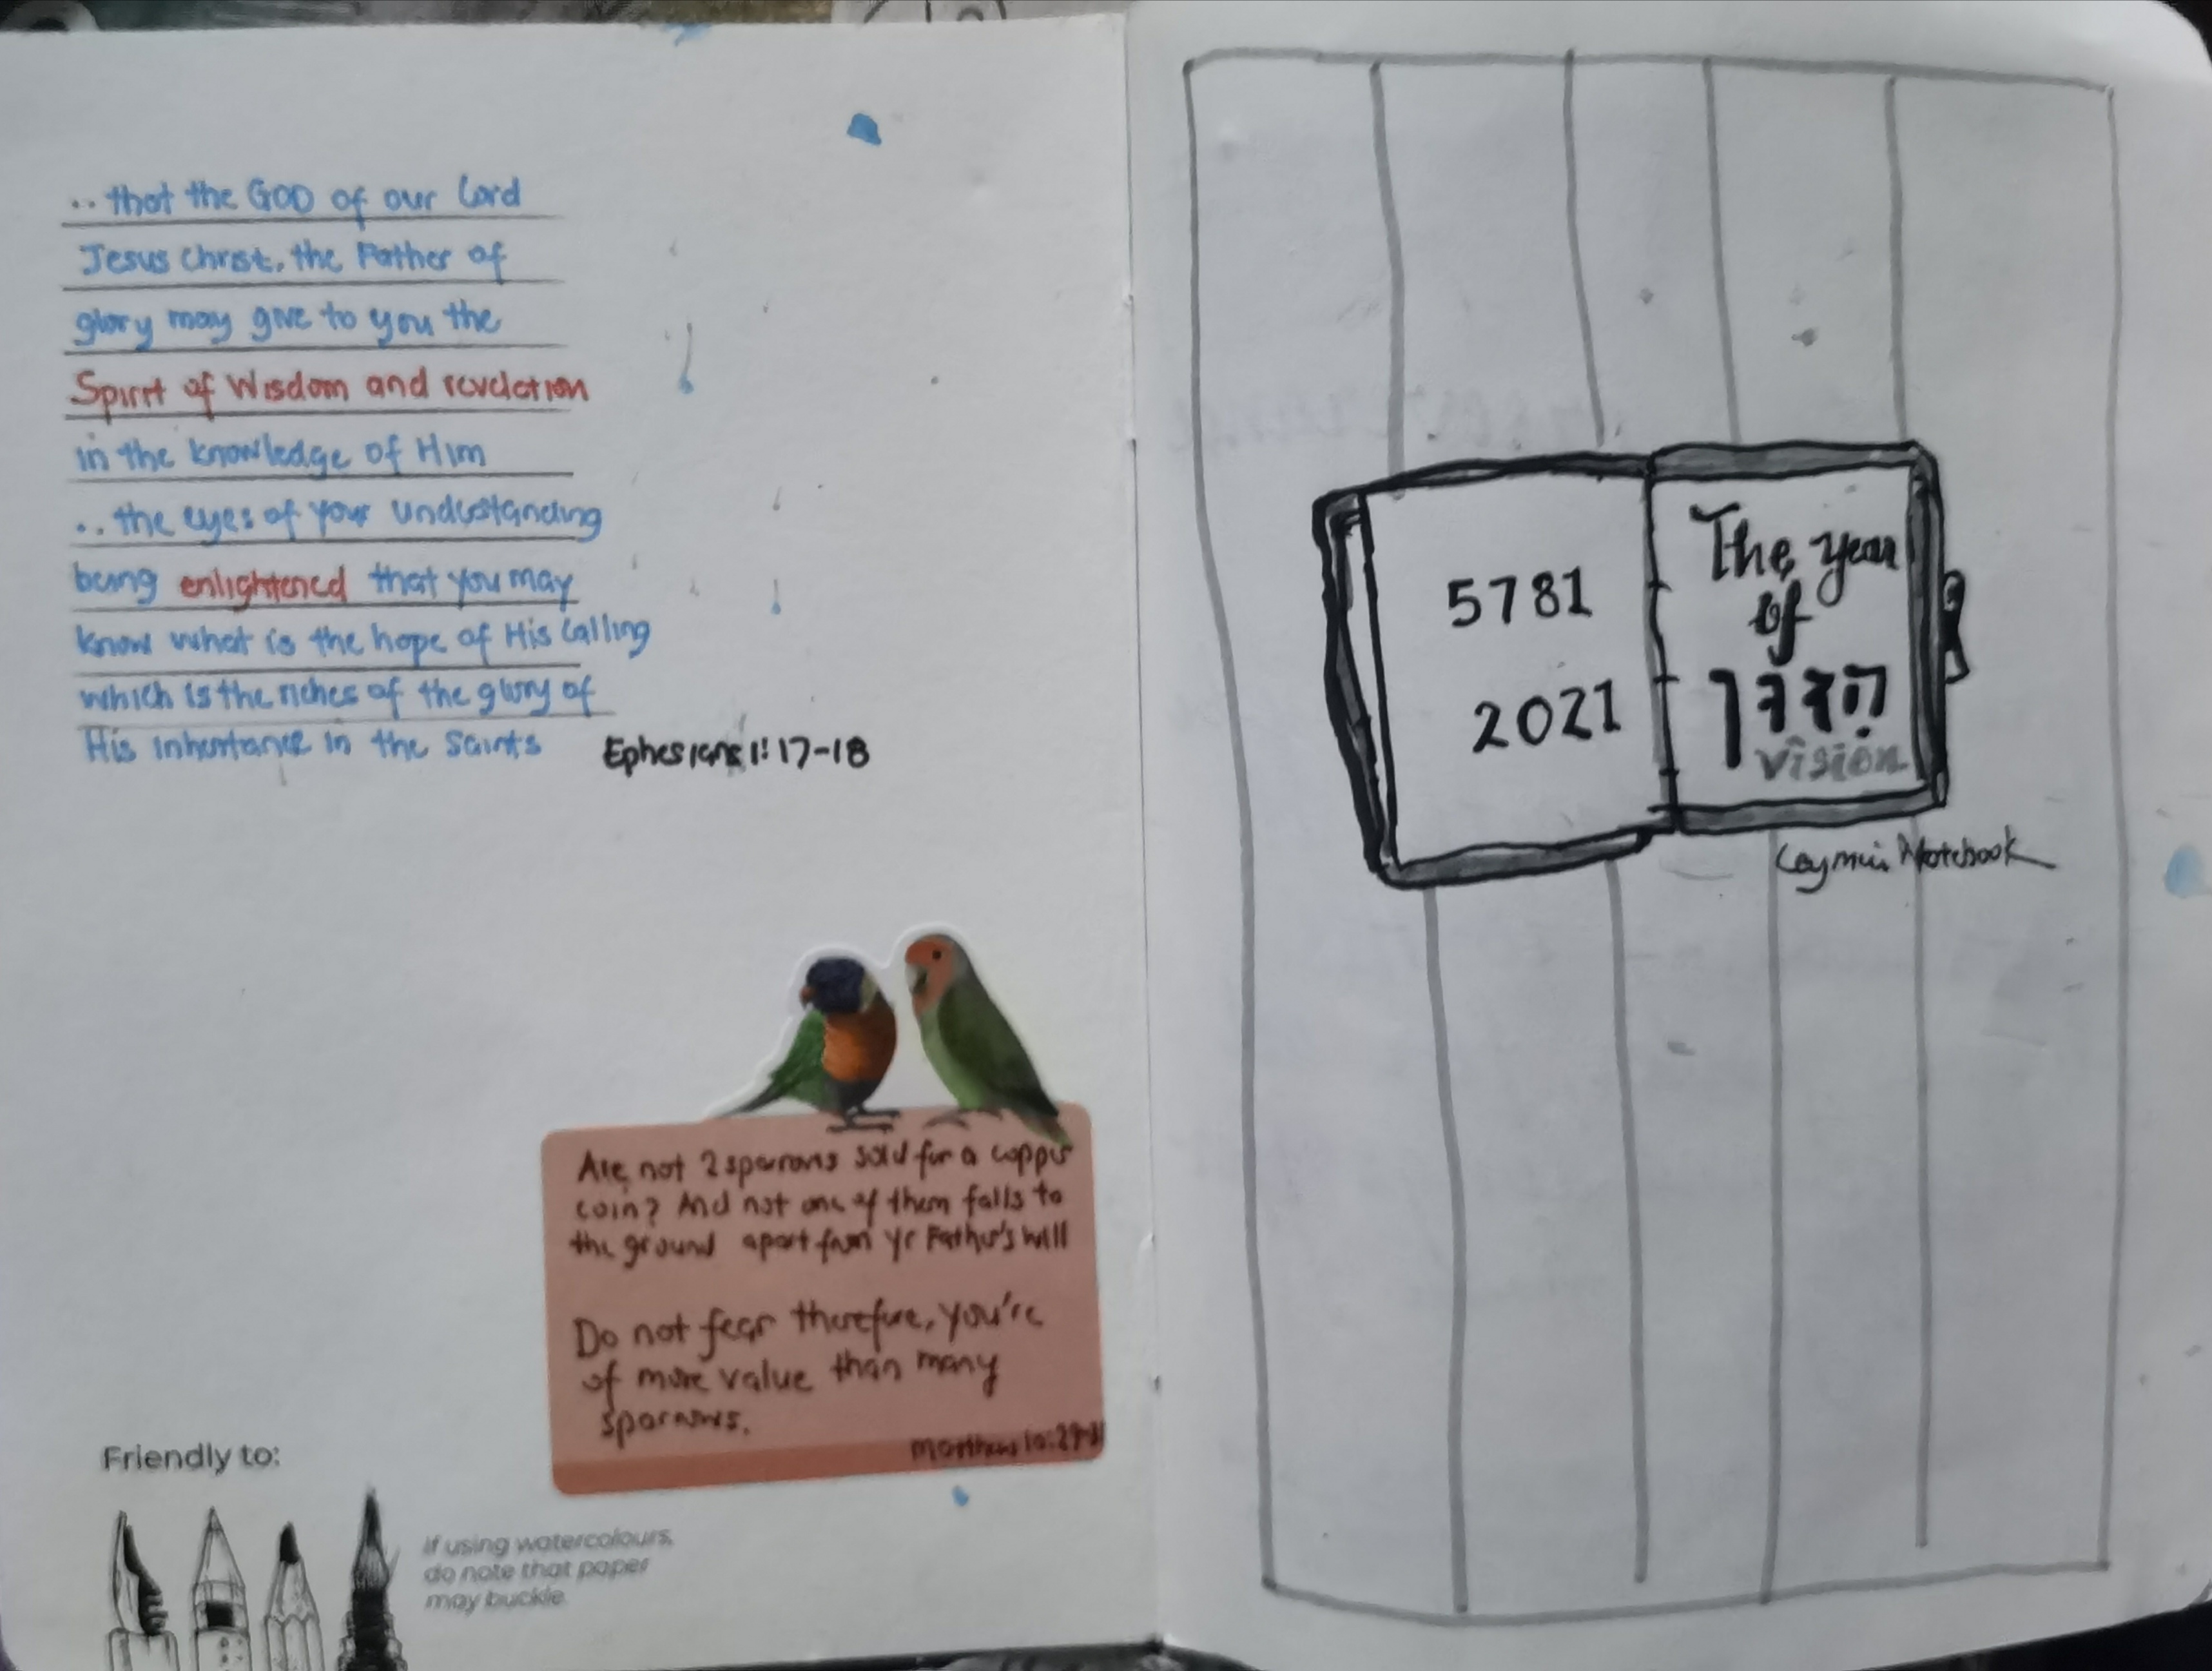 .. that the GOD of our Lord
Jesus Christ, the Father of
glory may give to you the
Spirit of Wisdom and revelation
in the knowledge of Him
.. the eyes of your understanding
being enlightened that you may
know what is the hope of His Calling
which is the riches of the glory of
His inheritance in the Saints
Ephesians 1:17-18
Are not 2 sparrows sold for a copper
coin? And not one of them falls to
the ground apart from yr Father's will
Do not fear therefore, you're
of more value than many
sparrows.
Matthew 10:29-31
Friendly to:
If using watercolours,
do note that paper
may buckle.
5781
2021
The year
of
vision
Notebook